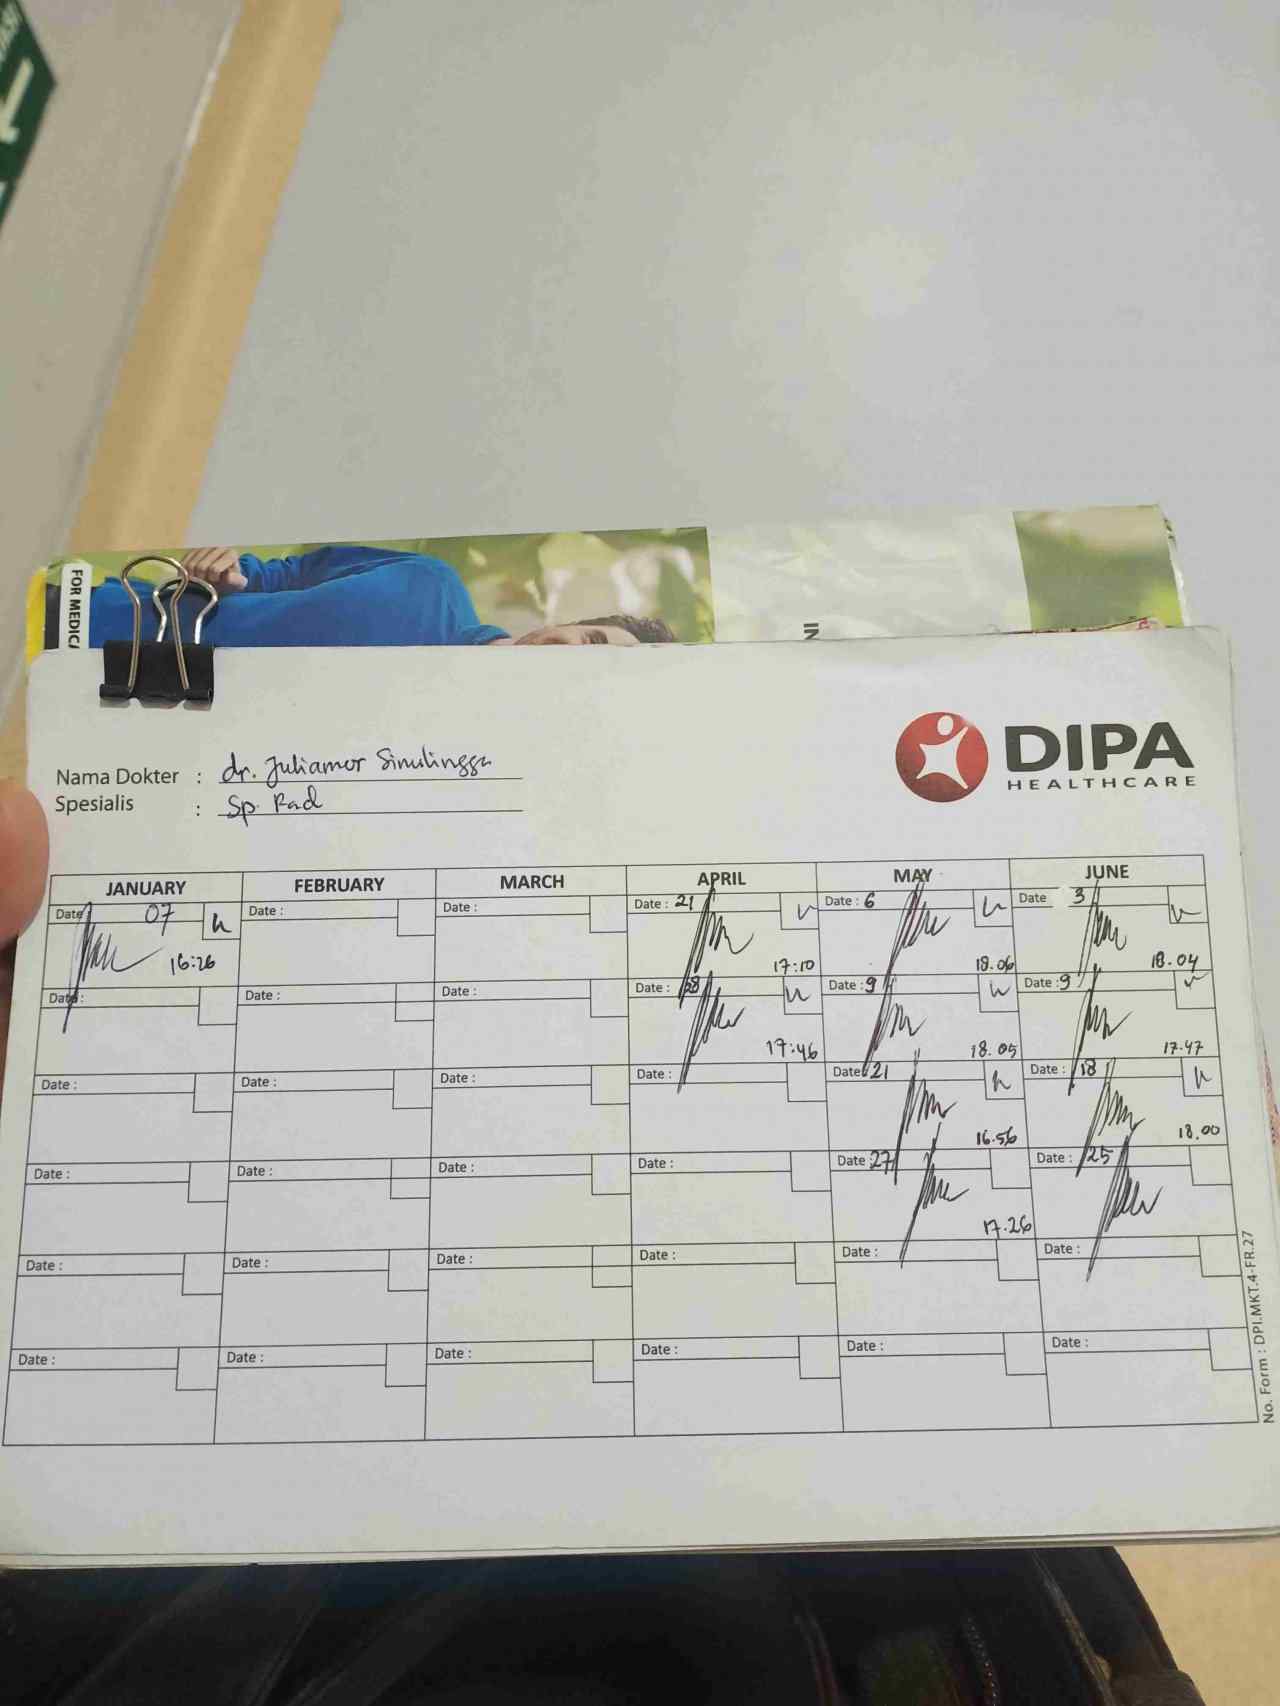 FOR MEDICA
IN
DIPA
HEALTHCARE
Nama Dokter : dr. Juliamor Sinulingga
Spesialis : Sp. Rad
JANUARY FEBRUARY MARCH APRIL MAY JUNE
Date 07 Date : Date : Date : 21 Date : 6 Date 3
16:26 17:10 18.06 18.04
Date : Date : Date : Date : 28 Date : 9 Date : 9
17:46 18.05 17.47
Date : Date : Date : Date : Date 21 Date : 18
16.56 18.00
Date : Date : Date : Date : Date : 27 Date : 25
17.26
Date : Date : Date : Date : Date : Date :
Date : Date : Date : Date : Date : Date :
No. Form : DPI.MKT.4-FR.27